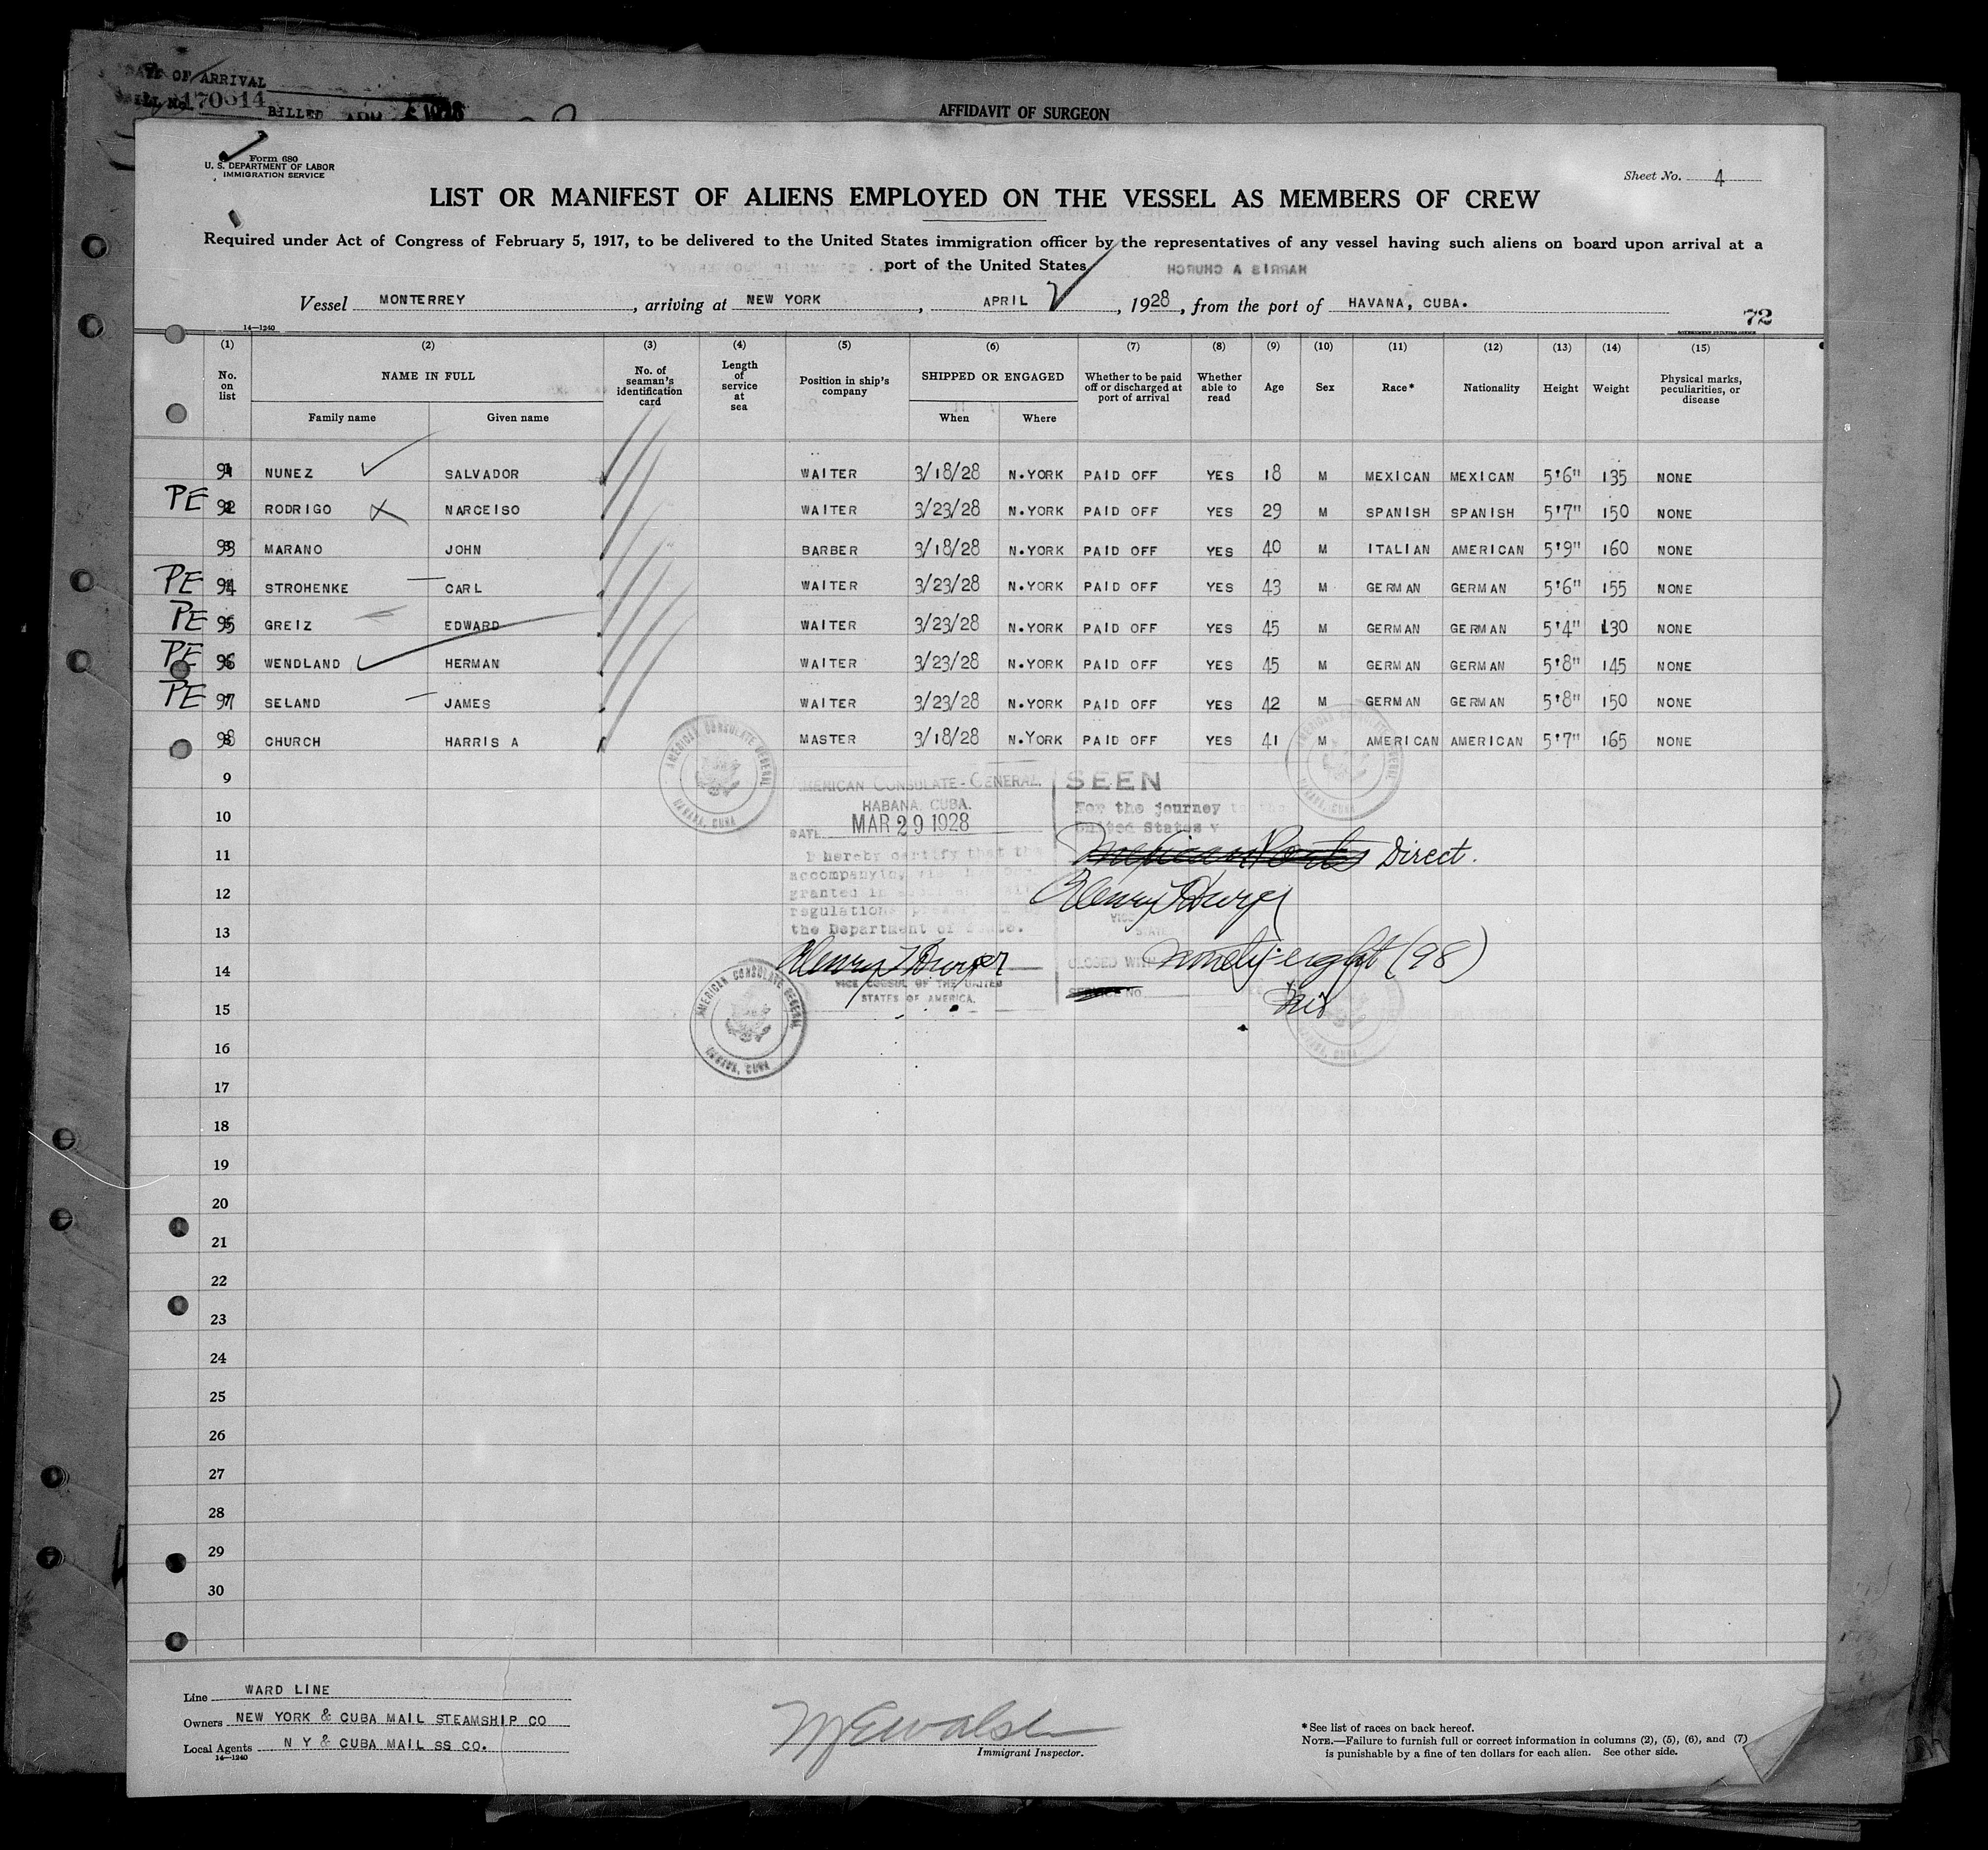 DATE OF ARRIVAL
170614 BILLED APR
AFFIDAVIT OF SURGEON
Form 680
U. S. DEPARTMENT OF LABOR
IMMIGRATION SERVICE
Sheet No. 4
LIST OR MANIFEST OF ALIENS EMPLOYED ON THE VESSEL AS MEMBERS OF CREW
Required under Act of Congress of February 5, 1917, to be delivered to the United States immigration officer by the representatives of any vessel having such aliens on board upon arrival at a
port of the United States
HARRIS A CHURCH
Vessel MONTERREY, arriving at NEW YORK, APRIL, 1928, from the port of HAVANA, CUBA.
72
14—1240
(1) (2) (3) (4) (5) (6) (7) (8) (9) (10) (11) (12) (13) (14) (15)
No. on list NAME IN FULL No. of seaman's identification card Length of service at sea Position in ship's company SHIPPED OR ENGAGED Whether to be paid off or discharged at port of arrival Whether able to read Age Sex Race* Nationality Height Weight Physical marks, peculiarities, or disease
Family name Given name When Where
91 NUNEZ SALVADOR WAITER 3/18/28 N.YORK PAID OFF YES 18 M MEXICAN MEXICAN 5'6" 135 NONE
PE 92 RODRIGO NARCEISO WAITER 3/23/28 N.YORK PAID OFF YES 29 M SPANISH SPANISH 5'7" 150 NONE
93 MARANO JOHN BARBER 3/18/28 N.YORK PAID OFF YES 40 M ITALIAN AMERICAN 5'9" 160 NONE
PE 94 STROHENKE CARL WAITER 3/23/28 N.YORK PAID OFF YES 43 M GERMAN GERMAN 5'6" 155 NONE
PE 95 GREIZ EDWARD WAITER 3/23/28 N.YORK PAID OFF YES 45 M GERMAN GERMAN 5'4" 130 NONE
PE 96 WENDLAND HERMAN WAITER 3/23/28 N.YORK PAID OFF YES 45 M GERMAN GERMAN 5'8" 145 NONE
PE 97 SELAND JAMES WAITER 3/23/28 N.YORK PAID OFF YES 42 M GERMAN GERMAN 5'8" 150 NONE
98 CHURCH HARRIS A MASTER 3/18/28 N.YORK PAID OFF YES 41 M AMERICAN AMERICAN 5'7" 165 NONE
AMERICAN CONSULATE GENERAL HABANA, CUBA
AMERICAN CONSULATE GENERAL HABANA, CUBA
9
AMERICAN CONSULATE-GENERAL.
HABANA, CUBA.
DATE MAR 29 1928
I hereby certify that the
accompanying
granted in
regulations
the Department of State.
VICE CONSUL OF THE UNITED
STATES OF AMERICA.
SEEN
For the journey to the
United States v
Mexican Ports Direct.
VICE
STATE
CLOSED WITH ninety-eight (98)
SERVICE NO.
AMERICAN CONSULATE GENERAL HABANA, CUBA
10
11
12
13
14
15
16
17
18
19
20
21
22
23
24
25
26
27
28
29
30
Line WARD LINE
Owners NEW YORK & CUBA MAIL STEAMSHIP CO
Local Agents N Y & CUBA MAIL SS CO.
14—1240
Immigrant Inspector.
*See list of races on back hereof.
NOTE.—Failure to furnish full or correct information in columns (2), (5), (6), and (7)
is punishable by a fine of ten dollars for each alien. See other side.